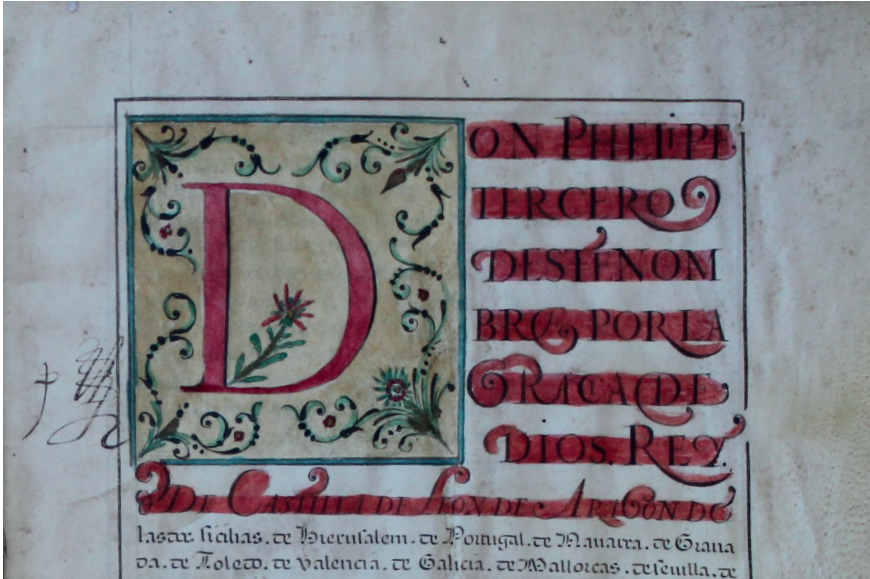 DON PHELIPE
TERCERO
DESTE NOM
BRE POR LA
GRACIA DE
DIOS. REY.
DE CASTILLA DE LEON DE ARAGON DE
las dos sicilias. de Hierusalem. de Portugal. de Nauarra. de Grana
da. de Toledo. de Valencia. de Galicia. de Mallorcas. de seuilla. de